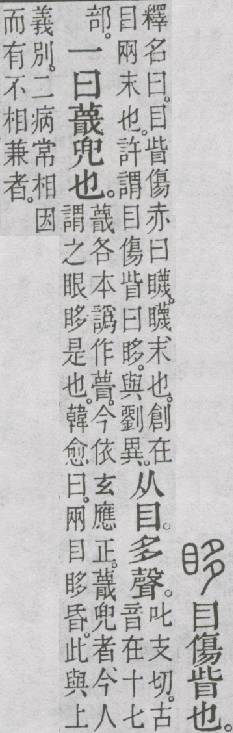 眵目傷眥也。
釋名曰。目眥傷赤曰䁾。䁾、末也。創在
目兩末也。許謂目傷眥曰眵。與劉異。
从目。多聲。
叱支切。古
音在十七
部。
一曰蔑兜也。
蔑各本譌作瞢。今依玄應正。蔑兜者、今人
謂之眼眵是也。韓愈曰。兩目眵昏。此與上
義別。二病常相因
而有不相兼者。